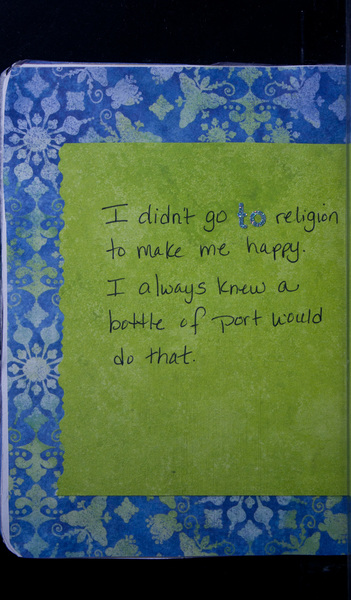 I didn't go to religion
to make me happy.
I always knew a
bottle of port would
do that.